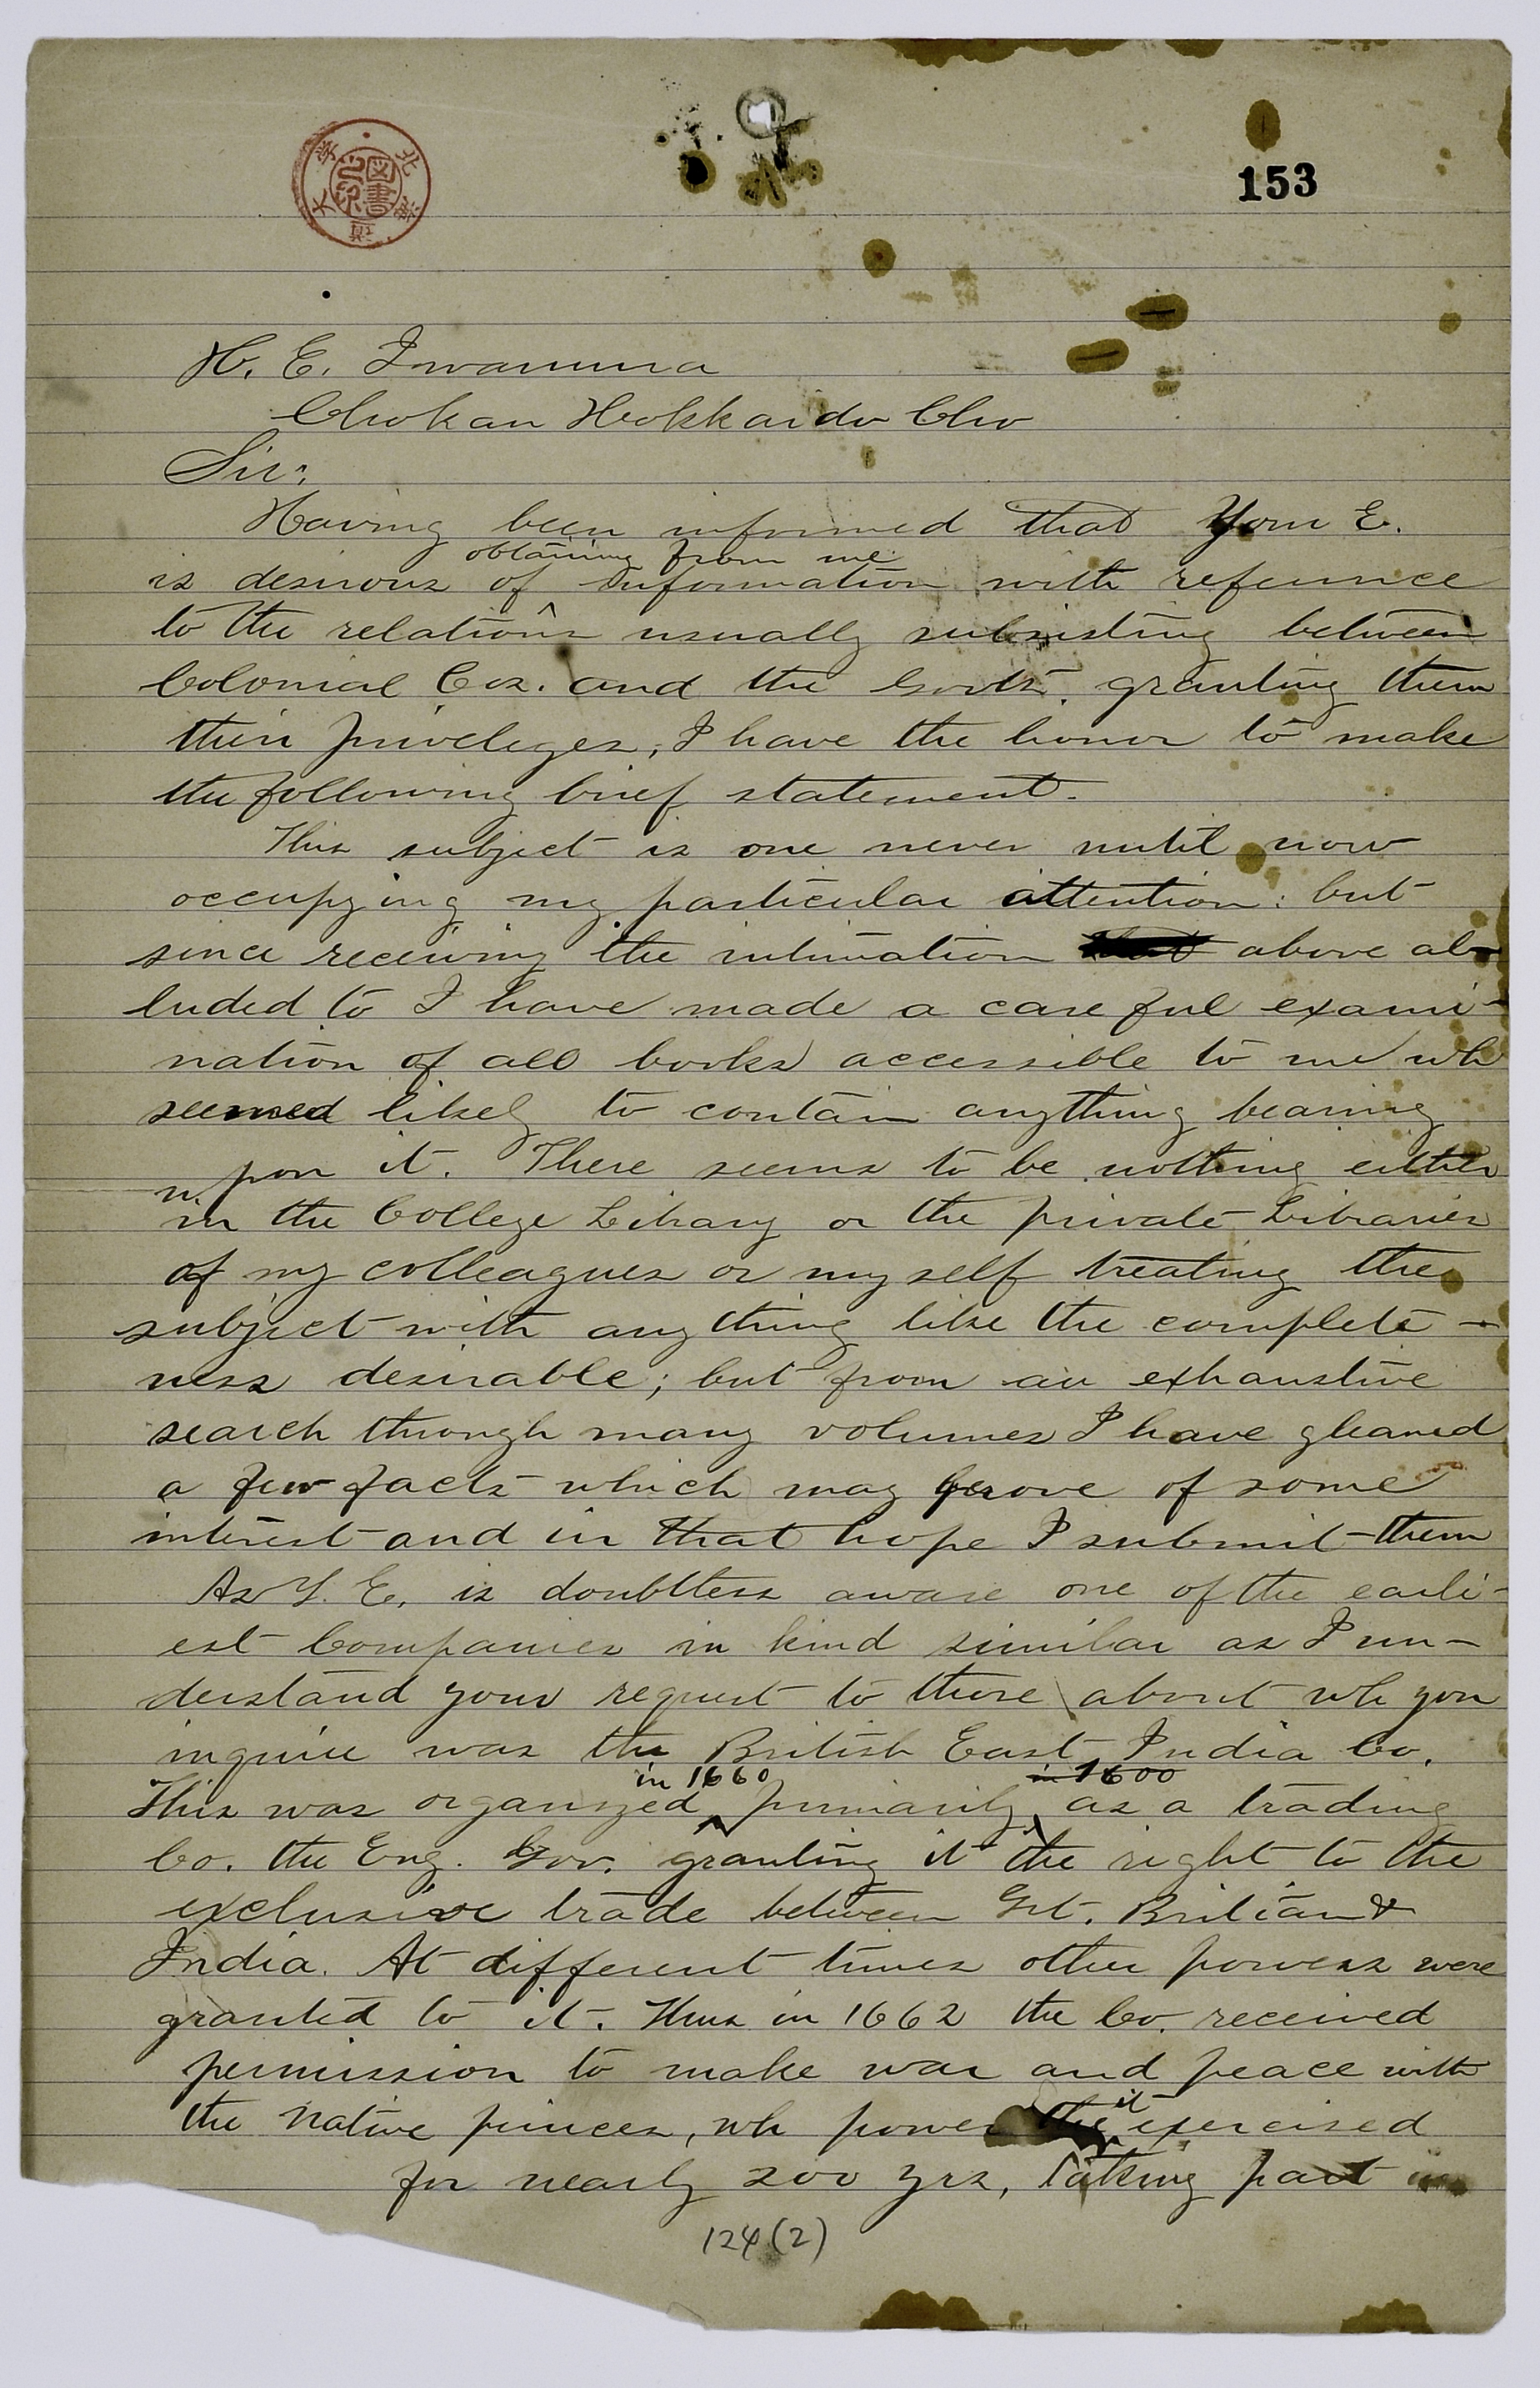 北海道帝国大学
図書之印
153
H. E. Iwamura
Chokan Hokkaido Cho
Sir:
Having been informed that Your E.
obtaining from me
is desirous of ^ information with reference
to the relations usually subsisting between
Colonial Cos. and the Govts. granting them
their priveleges, I have the honor to make
the following brief statement.
This subject is one never until now
occupying my particular attention: but
since receiving the intimation that above al-
luded to I have made a careful exami-
nation of all books accessible to me wh
seemed likely to contain anything bearing
upon it. There seems to be nothing either
in the College Library or the private Libraries
of my colleagues or myself treating the
subject with anything like the complete-
ness desirable; but from an exhaustive
search through many volumes I have gleaned
a few facts which may prove of some
interest and in that hope I submit them
As Y. E. is doubtless aware one of the earli-
est Companies in kind similar as I un-
derstand your request to those about wh you
inquire was the British East India Co.
in 1660 in 1600
This was organized ^ primarily ^ as a trading
Co. the Eng. Gov. granting it the right to the
exclusive trade between Grt. Britian &
India. At different times other powers were
granted to it. Thus in 1662 the Co. received
permission to make war and peace with
it
the native princes, wh power they ^ exercised
for nearly 200 yrs, taking part in
124(2)